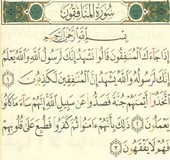 سُورَةُ المُنَافِقُون
بِسْمِ اللَّهِ الرَّحْمَٰنِ الرَّحِيمِ
إِذَا جَاءَكَ الْمُنَافِقُونَ قَالُوا نَشْهَدُ إِنَّكَ لَرَسُولُ اللَّهِ وَاللَّهُ يَعْلَمُ
إِنَّكَ لَرَسُولُهُ وَاللَّهُ يَشْهَدُ إِنَّ الْمُنَافِقِينَ لَكَاذِبُونَ ۝١
اتَّخَذُوا أَيْمَانَهُمْ جُنَّةً فَصَدُّوا عَنْ سَبِيلِ اللَّهِ إِنَّهُمْ سَاءَ مَا كَانُوا
يَعْمَلُونَ ۝٢ ذَٰلِكَ بِأَنَّهُمْ آمَنُوا ثُمَّ كَفَرُوا فَطُبِعَ عَلَىٰ قُلُوبِهِمْ
فَهُمْ لَا يَفْقَهُونَ ۝٣